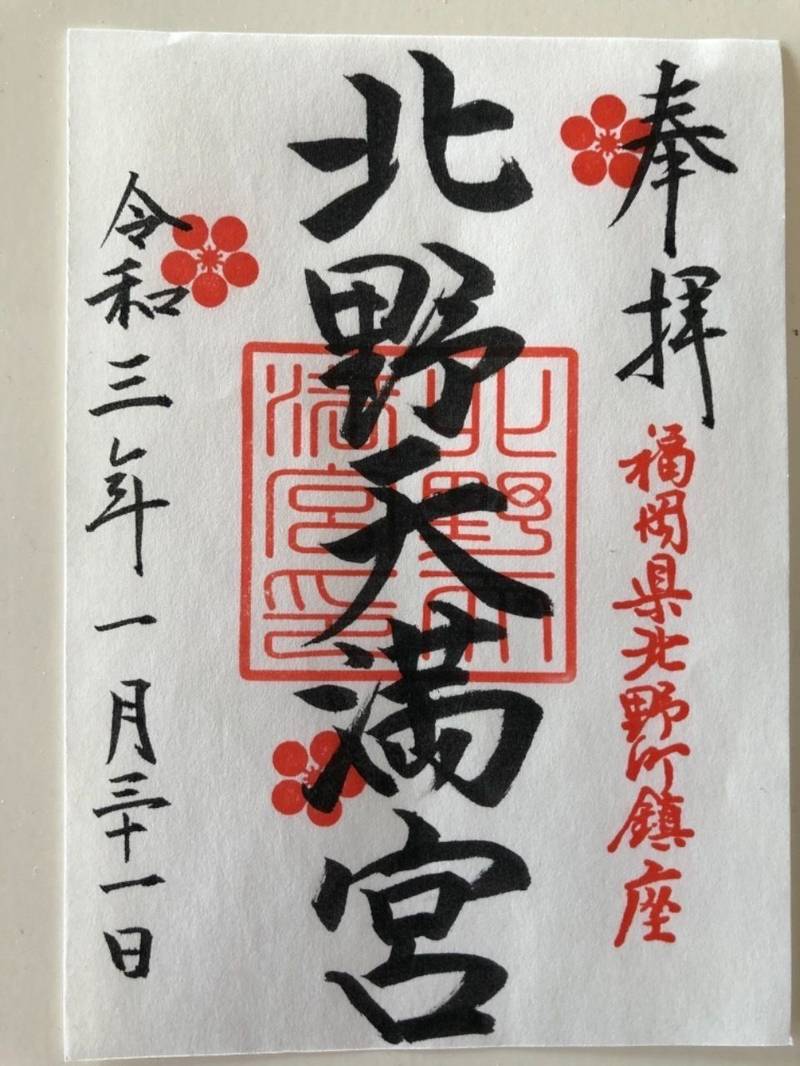 奉拝
福岡県北野町鎮座
北野天満宮
北野天満宮印
令和三年一月三十一日